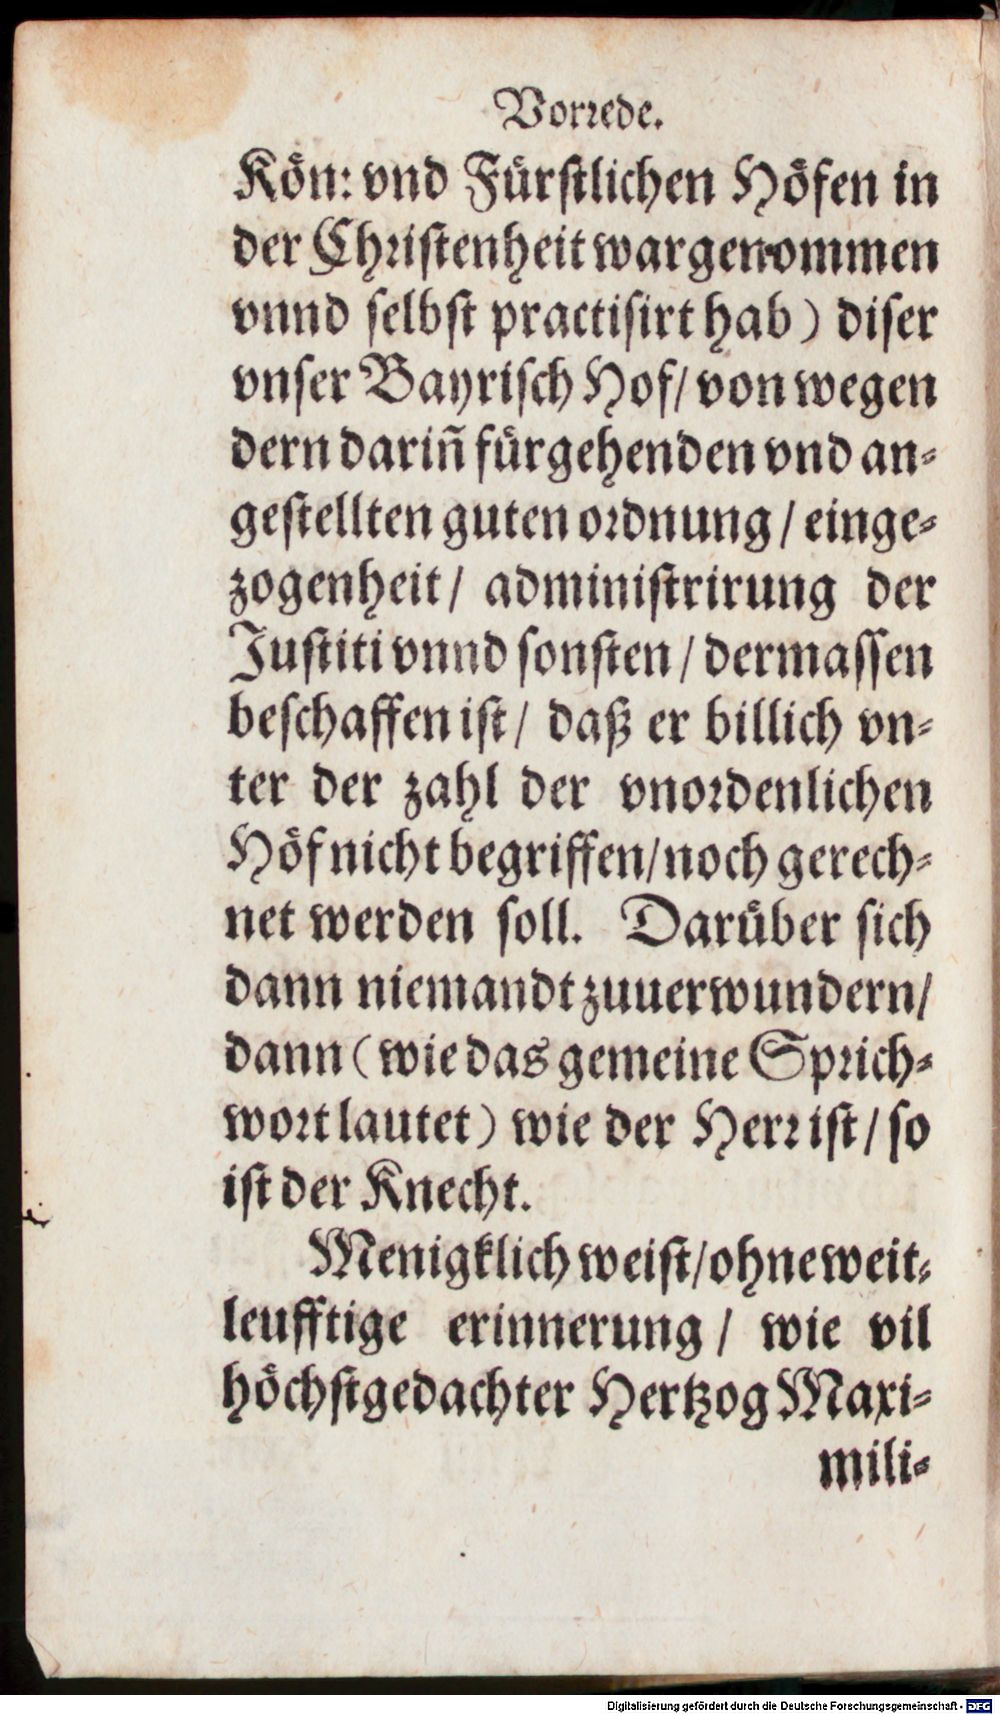 Vorrede.
Kön: vnd Fürstlichen Höfen in
der Christenheit wargenommen
vnnd selbst practisirt hab) diser
vnser Bayrisch Hof/ von wegen
dern dariñ fürgehenden vnd an-
gestellten guten ordnung / einge-
zogenheit / administrirung der
Justiti vnnd sonsten / dermassen
beschaffen ist / daß er billich vn-
ter der zahl der vnordenlichen
Höf nicht begriffen/ noch gerech-
net werden soll. Darüber sich
dann niemandt zuuerwundern/
dann (wie das gemeine Sprich-
wort lautet) wie der Herr ist / so
ist der Knecht.
Menigklich weist/ ohne weit-
leufftige erinnerung / wie vil
höchstgedachter Hertzog Maxi-
mili-
Digitalisierung gefördert durch die Deutsche Forschungsgemeinschaft - DFG